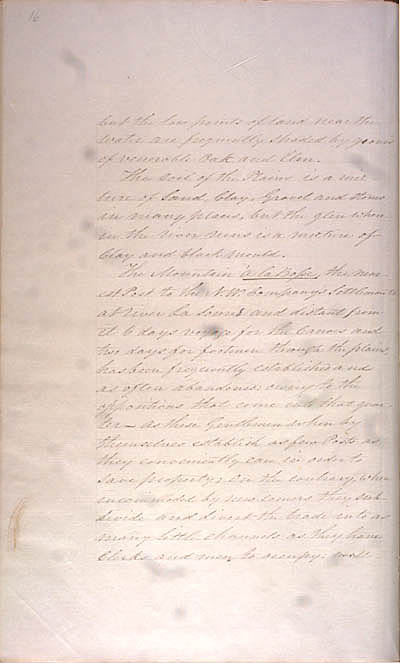 16
but the low points of land near the
water are frequently shaded by groves
of venerable Oak and Elm.
The soil of the Plains is a mix
ture of Sand, Clay, Gravel and stones
in many places, but the glen where
in the River runs is a mixture of
Clay and black mould.
The Mountain à la Bosse, the near
est Post to the N.W. Company's Settlement
at River La Souris and distant from
it 6 days voyage for the Canoes and
two days for footmen through the plains,
has been frequently established and
as often abandoned owing to the
oppositions that come into that quar
ter – as these Gentlemen when by
themselves establish as few Posts as
they conveniently can in order to
save property; on the contrary, when
incommoded by new comers they sub
divide and divert the trade into as
many little channels as they have
Clerks and men to occupy; well